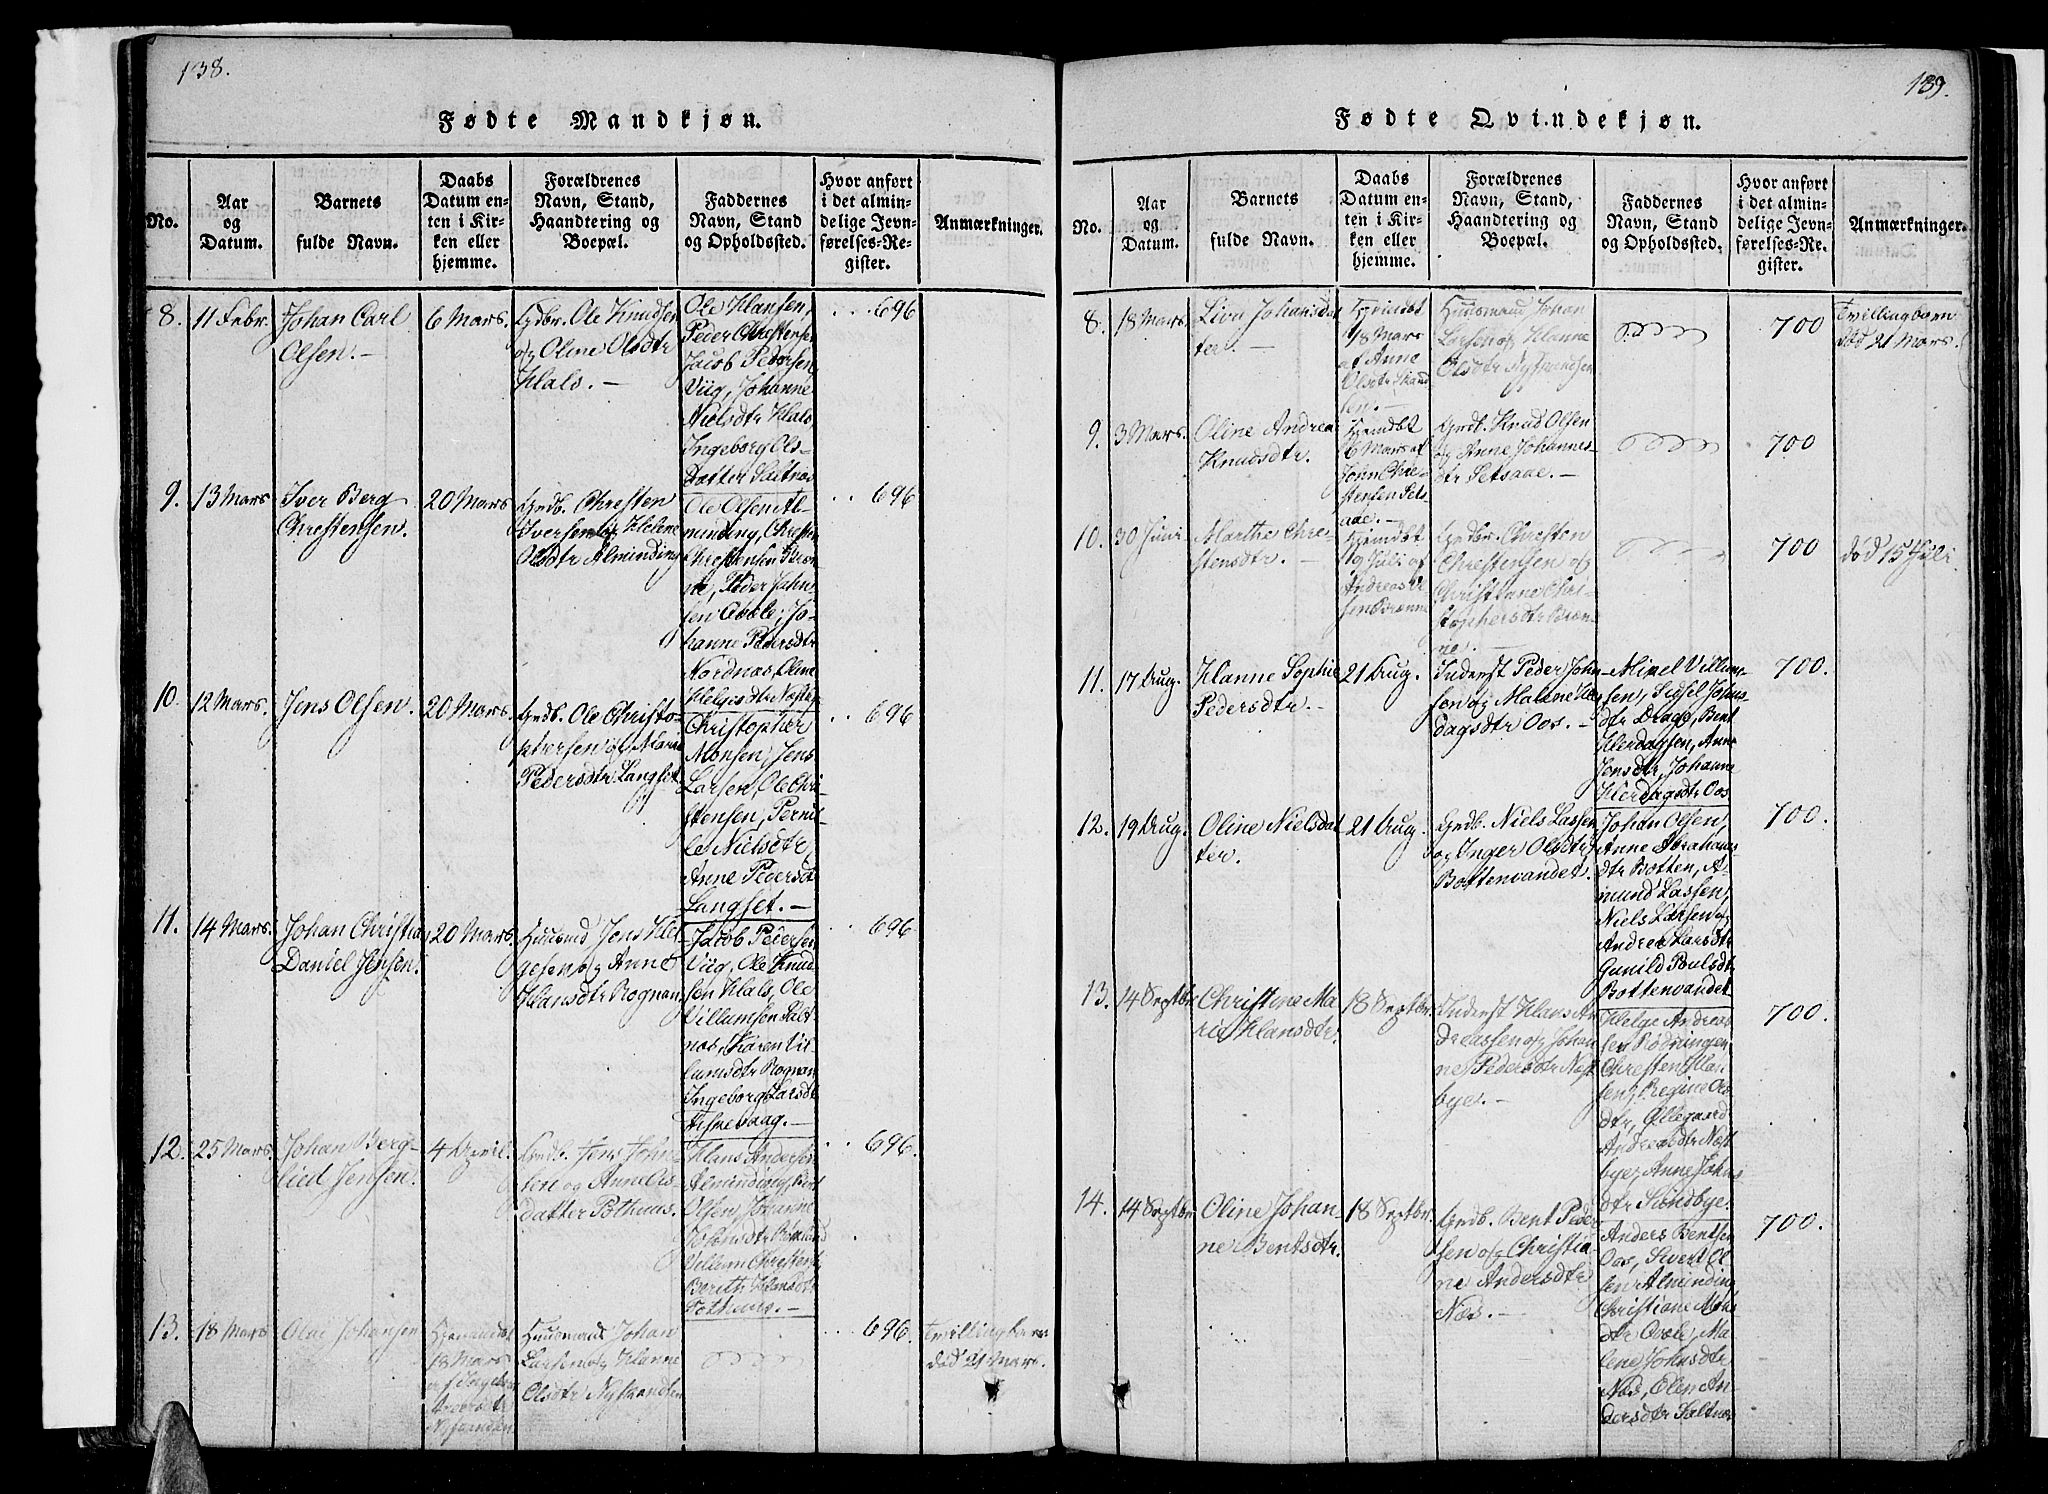 138.
Fødte Mandkjøn.
No.
Aar
og
Datum.
Barnets
fulde Navn.
Daabs
Datum en-
ten i Kir-
ken eller
hjemme.
Forældrenes
Navn, Stand,
Haandtering og
Boepæl.
Faddernes
Navn, Stand
og Opholdssted.
Hvor anført
i det almin-
delige Jevn-
førelses-Re-
gister.
Anmærkninger.
8.
11 Febr.
Johan Carl
Olsen.
6 Mars.
Gdbr. Ole Knudsen
og Oline Olsdtr
Hals.
Ole Hansen,
Peder Christensen
Jacob Pedersen
Viig, Johanne
Nielsdtr Hals,
Ingeborg Ols-
datter Saltnæs
696
9.
13 Mars
Iver Berg
Christensen.
20 Mars
Gdb. Christen
Iversen og Helene
Olsdtr Alminding
Ole Olsen Al-
minding, Christen
Christensen Bræn-
ne, Peder John-
sen Evole, Jo-
hanne Pedersdtr
Nordnæs, Oline
Helgesdtr Næstbye
696
10.
12 Mars.
Jens Olsen.
20 Mars.
Gdb. Ole Christo-
phersen og Maren
Pedersdtr Langset
Christopher
Monsen, Jens
Larsen, Ole Chri-
stensen, Pernil-
le Nielsdtr,
Anne Pedersdtr
Langset.
696
11.
14 Mars.
Johan Christian
Daniel Jensen.
20 Mars.
Huusmd Jens Hel-
gesen og Anne
Hansdtr Rognan
Jacob Pedersen
Viig, Ole Knud-
sen Hals, Ole
Villumsen Salt-
næs, Karen Vil-
lumsdtr Rognan
Ingeborg Larsdtr
Fiskevaag.
696
12.
25 Mars.
Johan Berg-
lied Jensen.
4 April.
Gdb. Jens John-
sen og Anne Ols-
datter Pothuus.
Hans Andersen
Alminding, Bent
Olsen, Johanne
Johnsdtr
Villum Christensen
Berith Hansdtr
Pothuus.
696
13.
18 Mars
Olai Johansen
Hjemdøbt
18 Mars
af Ingebor
Huusmand Johan
Larsen og Hanne
Olsdtr Nystrandsen
696.
Tvillingbarn
død 21 Mars.
139.
Fødte Qvindekjøn.
No.
Aar
og
Datum.
Barnets
fulde Navn.
Daabs
Datum en-
ten i Kir-
ken eller
hjemme.
Forældrenes
Navn, Stand,
Haandtering og
Boepæl.
Faddernes
Navn, Stand
og Opholdssted.
Hvor anført
i det almin-
delige Jevn-
førelses-Re-
gister.
Anmærkninger.
8.
18 Mars.
Liva Johansdat-
ter.
Hjemdøbt
18 Mars
af Anne
Olsdtr Strand-
sen.
Huusmand Johan
Larsen og Hanne
Olsdtr Nystrandsen
700
Tvillingbarn
død 21 Mars.
9.
3 Mars.
Oline Andrea
Knudsdtr.
Hjemdøbt
6 Mars af
John Chri-
stensen Sets-
aae.
Gdb. Knud Olsen
og Anne Johannes-
dtr Setsaae.
700
10.
30 Juni
Marthe Chri-
stensdtr.
Hjemdøbt
9 Juli af
Andreas Ol-
sen Brænne
Gdbr. Christen
Christensen og
Christiane Chri-
stophersdtr Bræn-
ne.
700
død 15 Juli
11.
17 Aug.
Hanne Sophie
Pedersdtr.
21 Aug.
Inderst Peder John-
sen og Malene Her-
dagsdtr Oos.
Mikel Villum-
sen, Sidsel Johns-
dtr Dragg, Bent
Herdagsen, Anne
Jensdtr, Johanne
Herdagsdtr Oos.
700.
12.
19 Aug.
Oline Nielsdat-
ter.
21 Aug.
Gdb. Niels Lassen
og Inger Olsdtr
Bottenvandet.
Johan Olsen,
Anne Abrahams-
dtr Botten, A-
mund Lassen,
Niels Larsen og
Andrea Larsdtr
Gunild Poulsdtr
Bottenvandet.
700.
13.
14 Septbr
Christine Ma-
rie Hansdtr.
18 Septbr.
Inderst Hans An-
dreassen og Johan-
ne Pedersdtr Næst-
bye.
Helge Andreas-
sen Rødningen
Christen Han-
sen, Regine Ols-
dtr, Ollegaard
Andreasdtr Næst-
bye, Anne Johns-
dtr Sundbye.
700.
14.
14 Septbr
Oline Johan-
ne Bentsdtr.
18 Septbr.
Gdb. Bent Peder-
sen og Christia-
ne Andersdtr
Næs.
Anders Bentsen
Oos, Sivert Ol-
sen Alminding
Christiane Mons-
dtr Evole, Ma-
lene Johnsdtr
Næs, Olen An-
dersdtr Saltnæs
700.